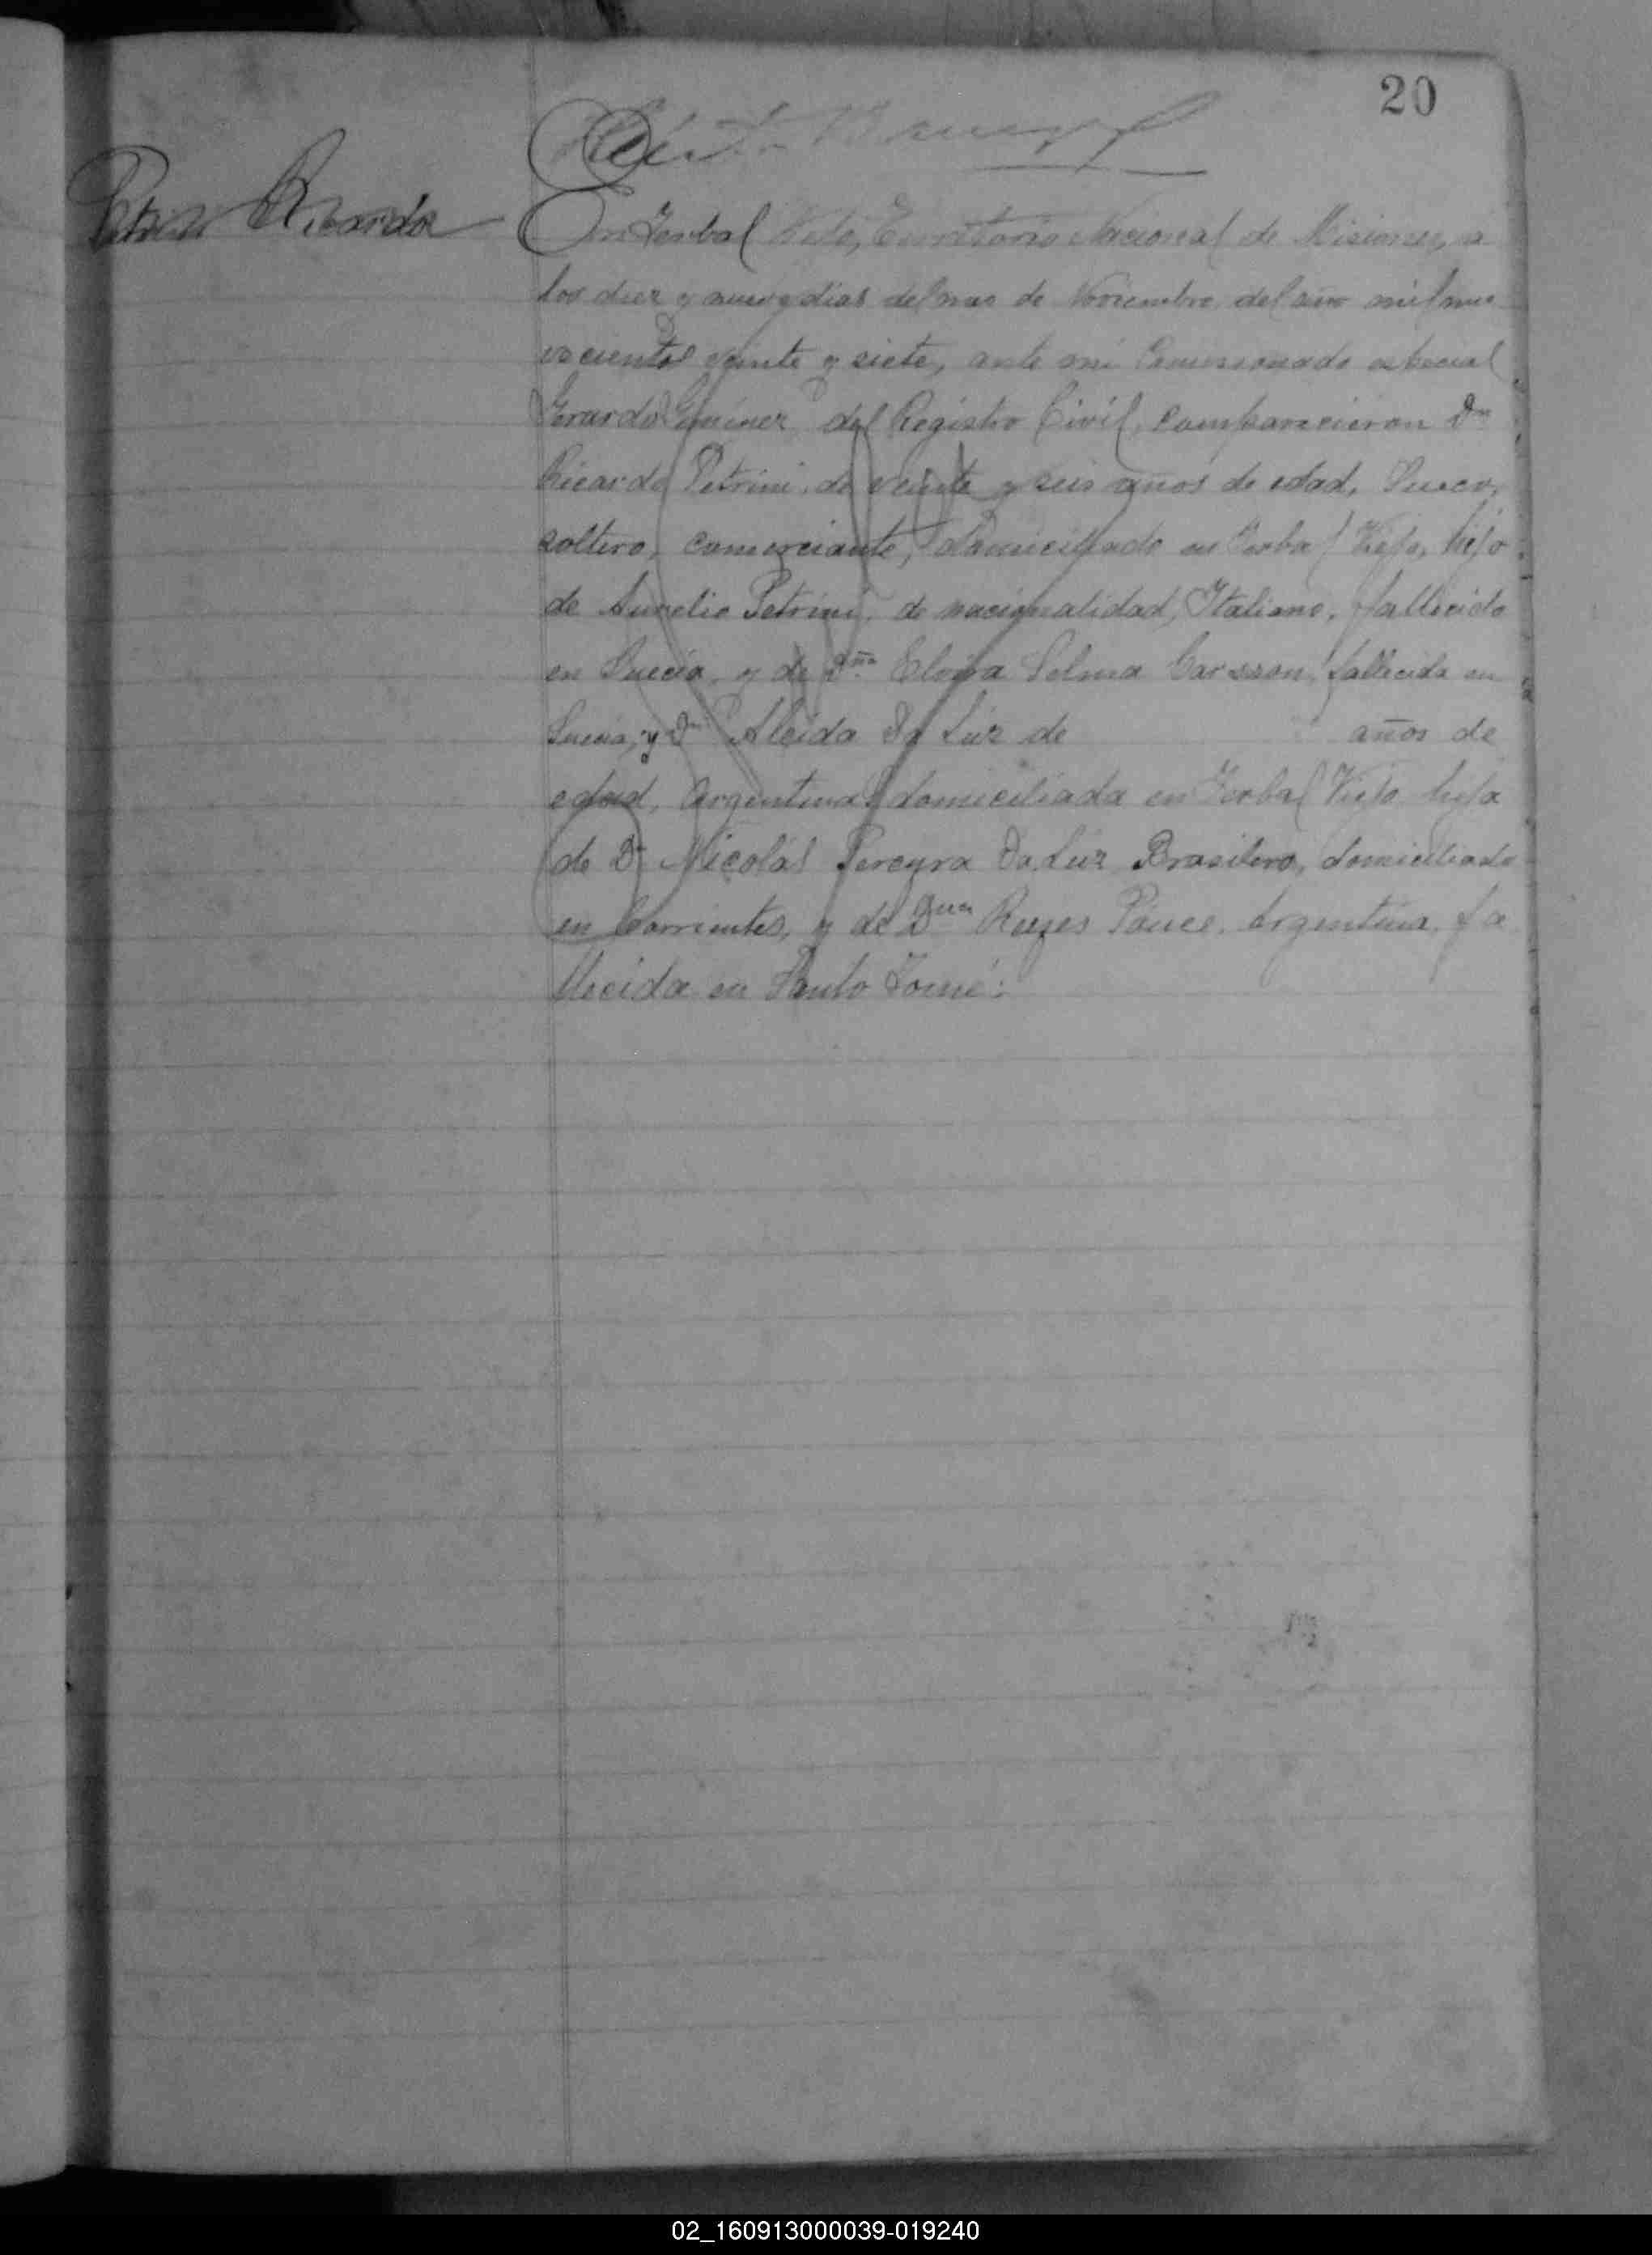 20
Petrini Ricardo
En Yerbal Viejo, Territorio Nacional de Misiones, a
los diez y nueve dias del mes de Noviembre del año mil nue
vecientos veinte y siete, ante mi Comisionado especial
Gerardo Gimenez del Registro Civil, comparecieron Dn
Ricardo Petrini, de veinte y seis años de edad, Sueco,
soltero, comerciante, domiciliado en Yerbal Viejo, hijo
de Aurelio Petrini, de nacionalidad, Italiano, fallecido
en Suecia, y de Dña Elvira Selma Carsson, fallecida en
Suecia, y Dña Aleida Da Luz de años de
edad, Argentina, domiciliada en Yerbal Viejo hija
de Dn Nicolás Pereyra Da Luz Brasilero, domiciliado
en Corrientes, y de Dña Reyes Ponce, Argentina, fa
llecida en Santo Tomé:
02_160913000039-019240